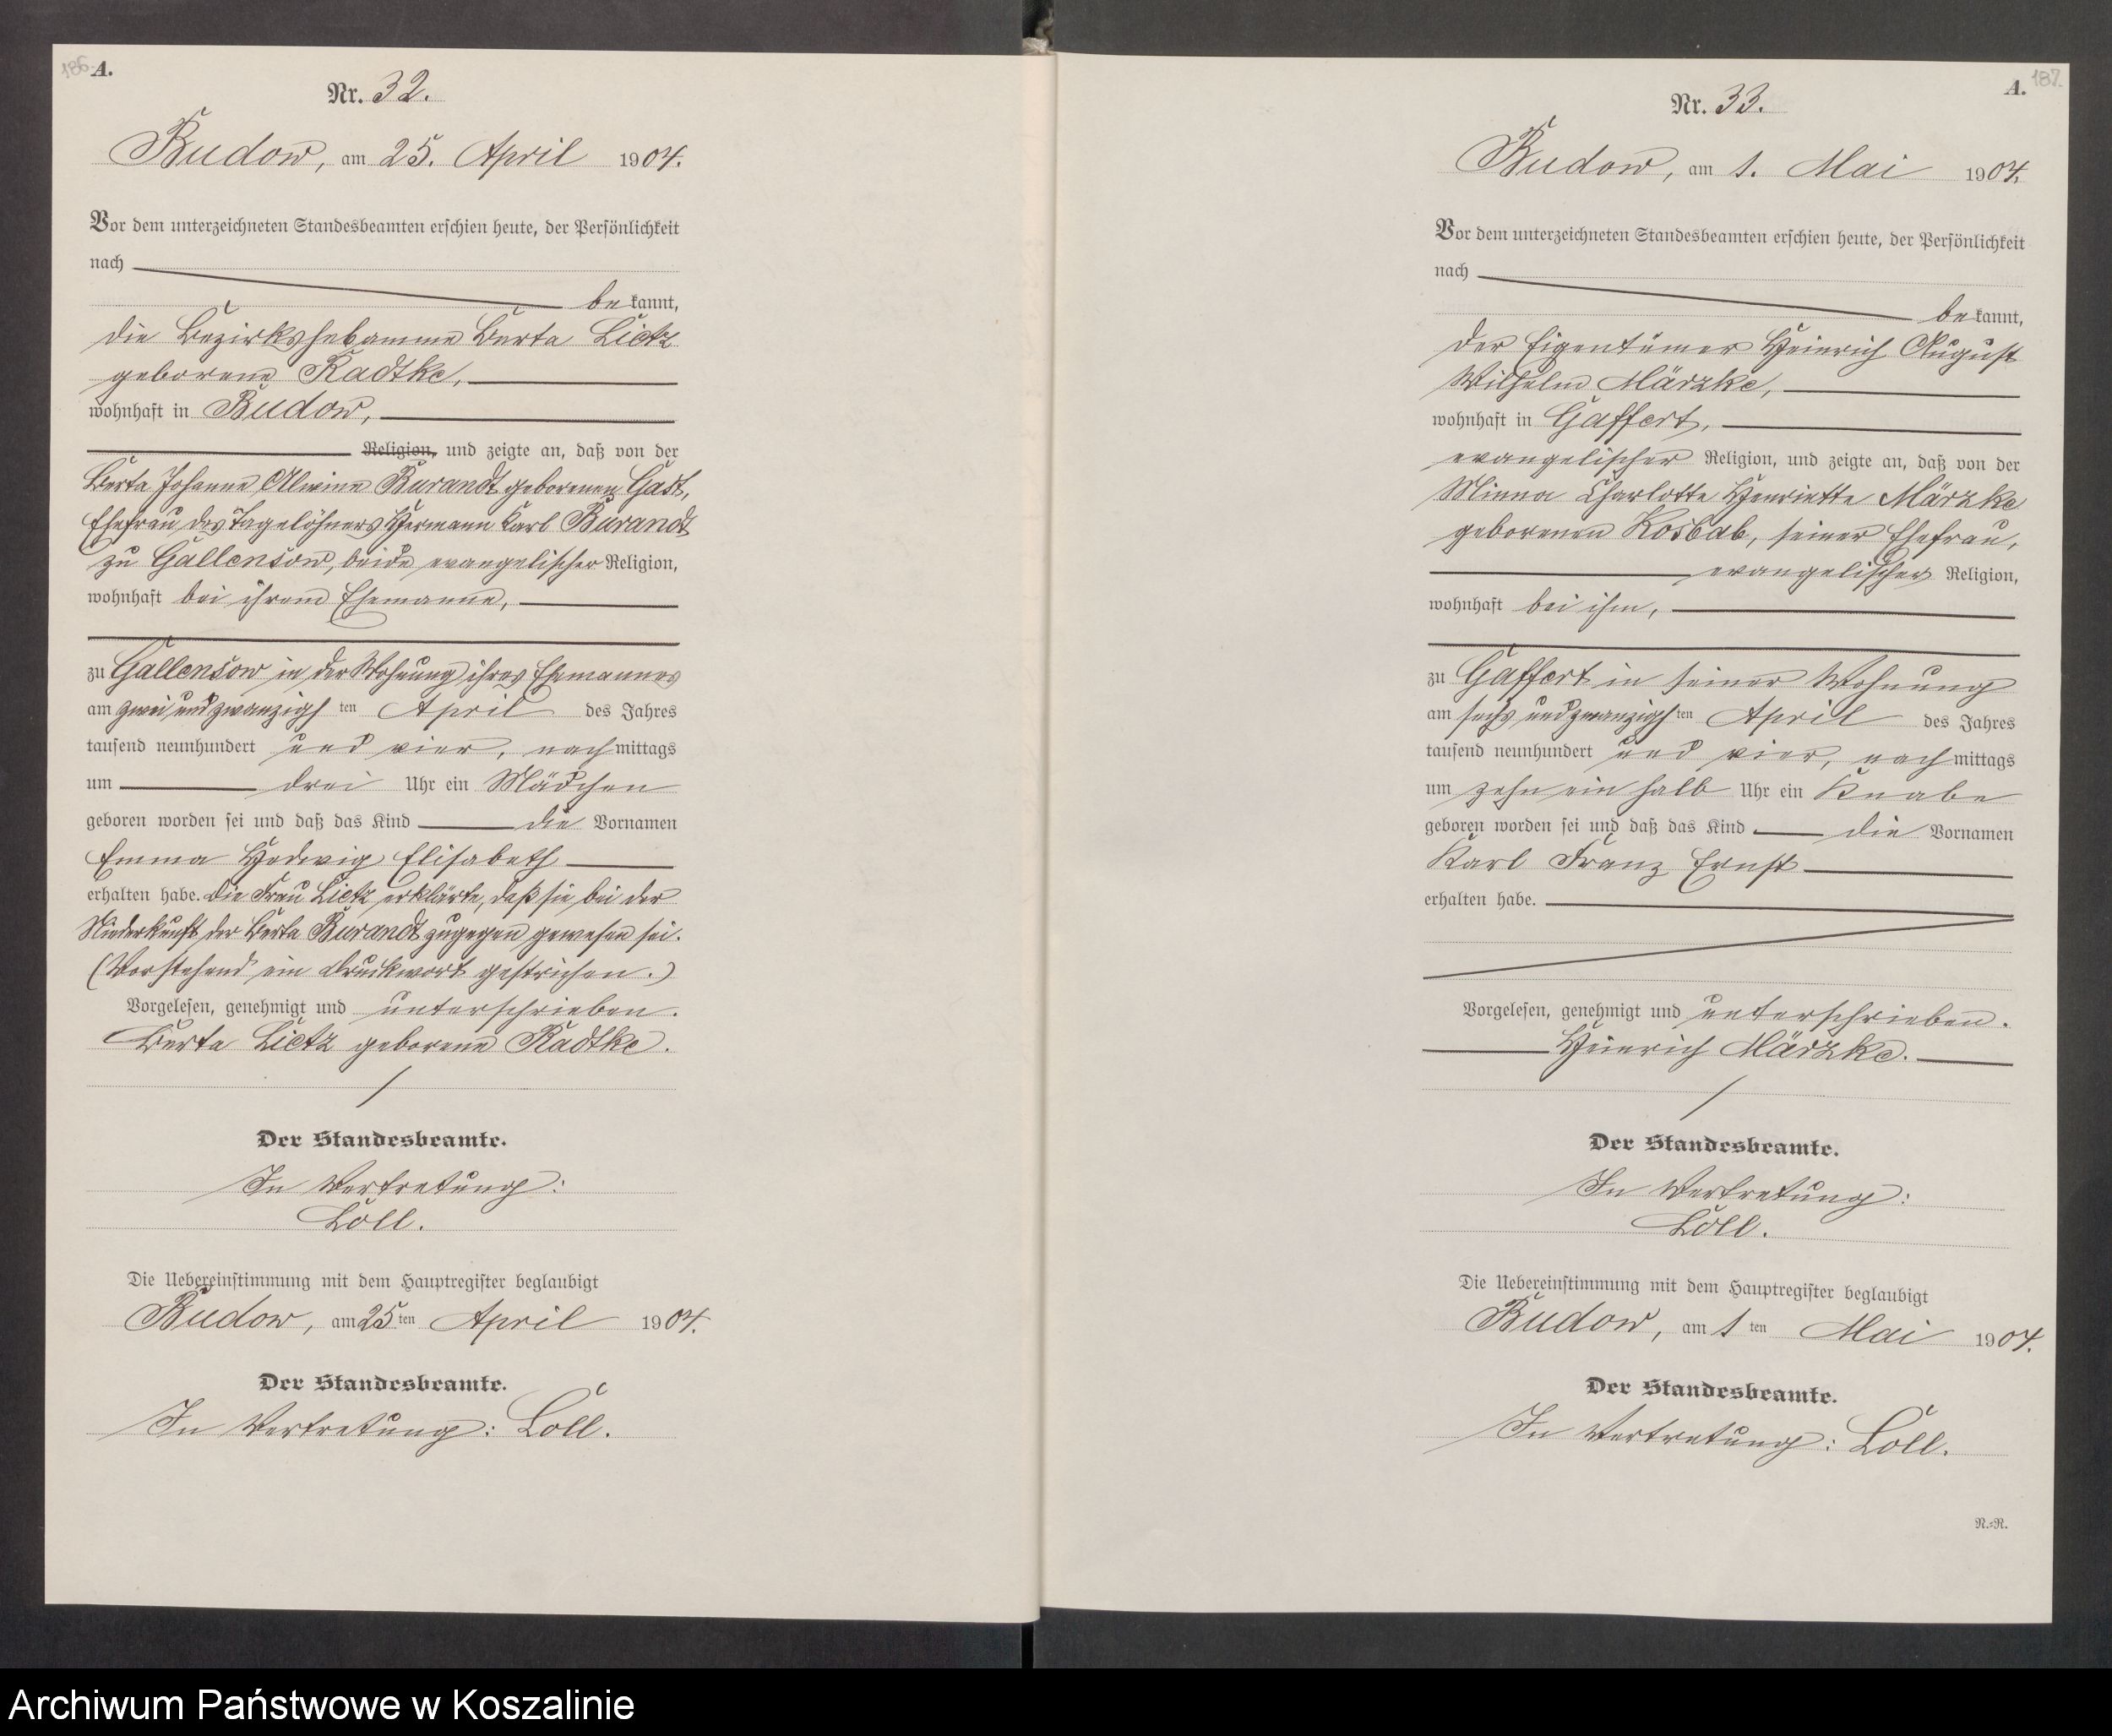 186. A.
Nr. 32.
Budow, am 25. April 1904.
Vor dem unterzeichneten Standesbeamten erschien heute, der Persönlichkeit
nach
bekannt,
die Bezirkshebamme Berta Lietz
geborene Radtke,
wohnhaft in Budow,
Religion, und zeigte an, daß von der
Berta Johanne Alwine Burandt geborenen Gast,
Ehefrau des Tagelöhners Hermann Karl Burandt
zu Gallensow, beide evangelischer Religion,
wohnhaft bei ihrem Ehemanne,
zu Gallensow in der Wohnung ihres Ehemannes
am zwei und zwanzigsten April des Jahres
tausend neunhundert und vier, nachmittags
um drei Uhr ein Mädchen
geboren worden sei und daß das Kind die Vornamen
Emma Hedwig Elisabeth
erhalten habe. Die Frau Lietz erklärte, daß sie bei der
Niederkunft der Berta Burandt zugegen gewesen sei.
(Vorstehend ein Druckwort gestrichen.)
Vorgelesen, genehmigt und unterschrieben.
Berta Lietz geborene Radtke.
Der Standesbeamte.
In Vertretung:
Loll.
Die Uebereinstimmung mit dem Hauptregister beglaubigt
Budow, am 25ten April 1904.
Der Standesbeamte.
In Vertretung: Loll.
A. 187.
Nr. 33.
Budow, am 1. Mai 1904.
Vor dem unterzeichneten Standesbeamten erschien heute, der Persönlichkeit
nach
bekannt,
der Eigentümer Heinrich August
Wilhelm Märzke,
wohnhaft in Gaffert,
evangelischer Religion, und zeigte an, daß von der
Minna Charlotte Henriette Märzke
geborenen Kosbab, seiner Ehefrau,
evangelischer Religion,
wohnhaft bei ihm,
zu Gaffert in seiner Wohnung
am sechs und zwanzigsten April des Jahres
tausend neunhundert und vier, nachmittags
um zehn ein halb Uhr ein Knabe
geboren worden sei und daß das Kind die Vornamen
Karl Franz Ernst
erhalten habe.
Vorgelesen, genehmigt und unterschrieben.
Heinrich Märzke.
Der Standesbeamte.
In Vertretung:
Loll.
Die Uebereinstimmung mit dem Hauptregister beglaubigt
Budow, am 1ten Mai 1904.
Der Standesbeamte.
In Vertretung: Loll.
R.=R.
Archiwum Państwowe w Koszalinie